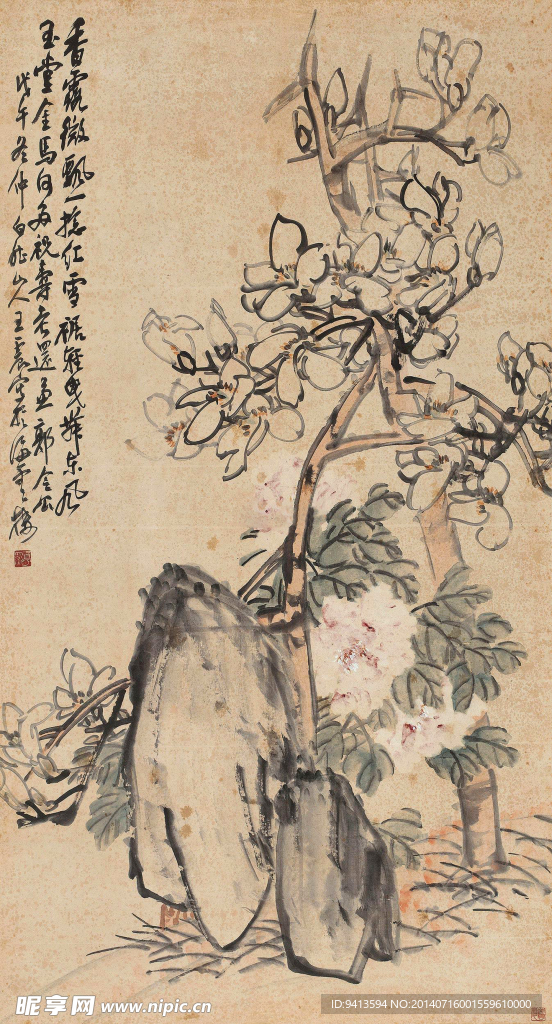 香霏微飘一捻红雪裾轻曳舞东风
玉堂金马何为祝寿考还孟郭令公
戊午冬仲白龙山人王震写于海云楼
昵享网 www.nipic.cn
ID:9413594 NO:20140716001559610000